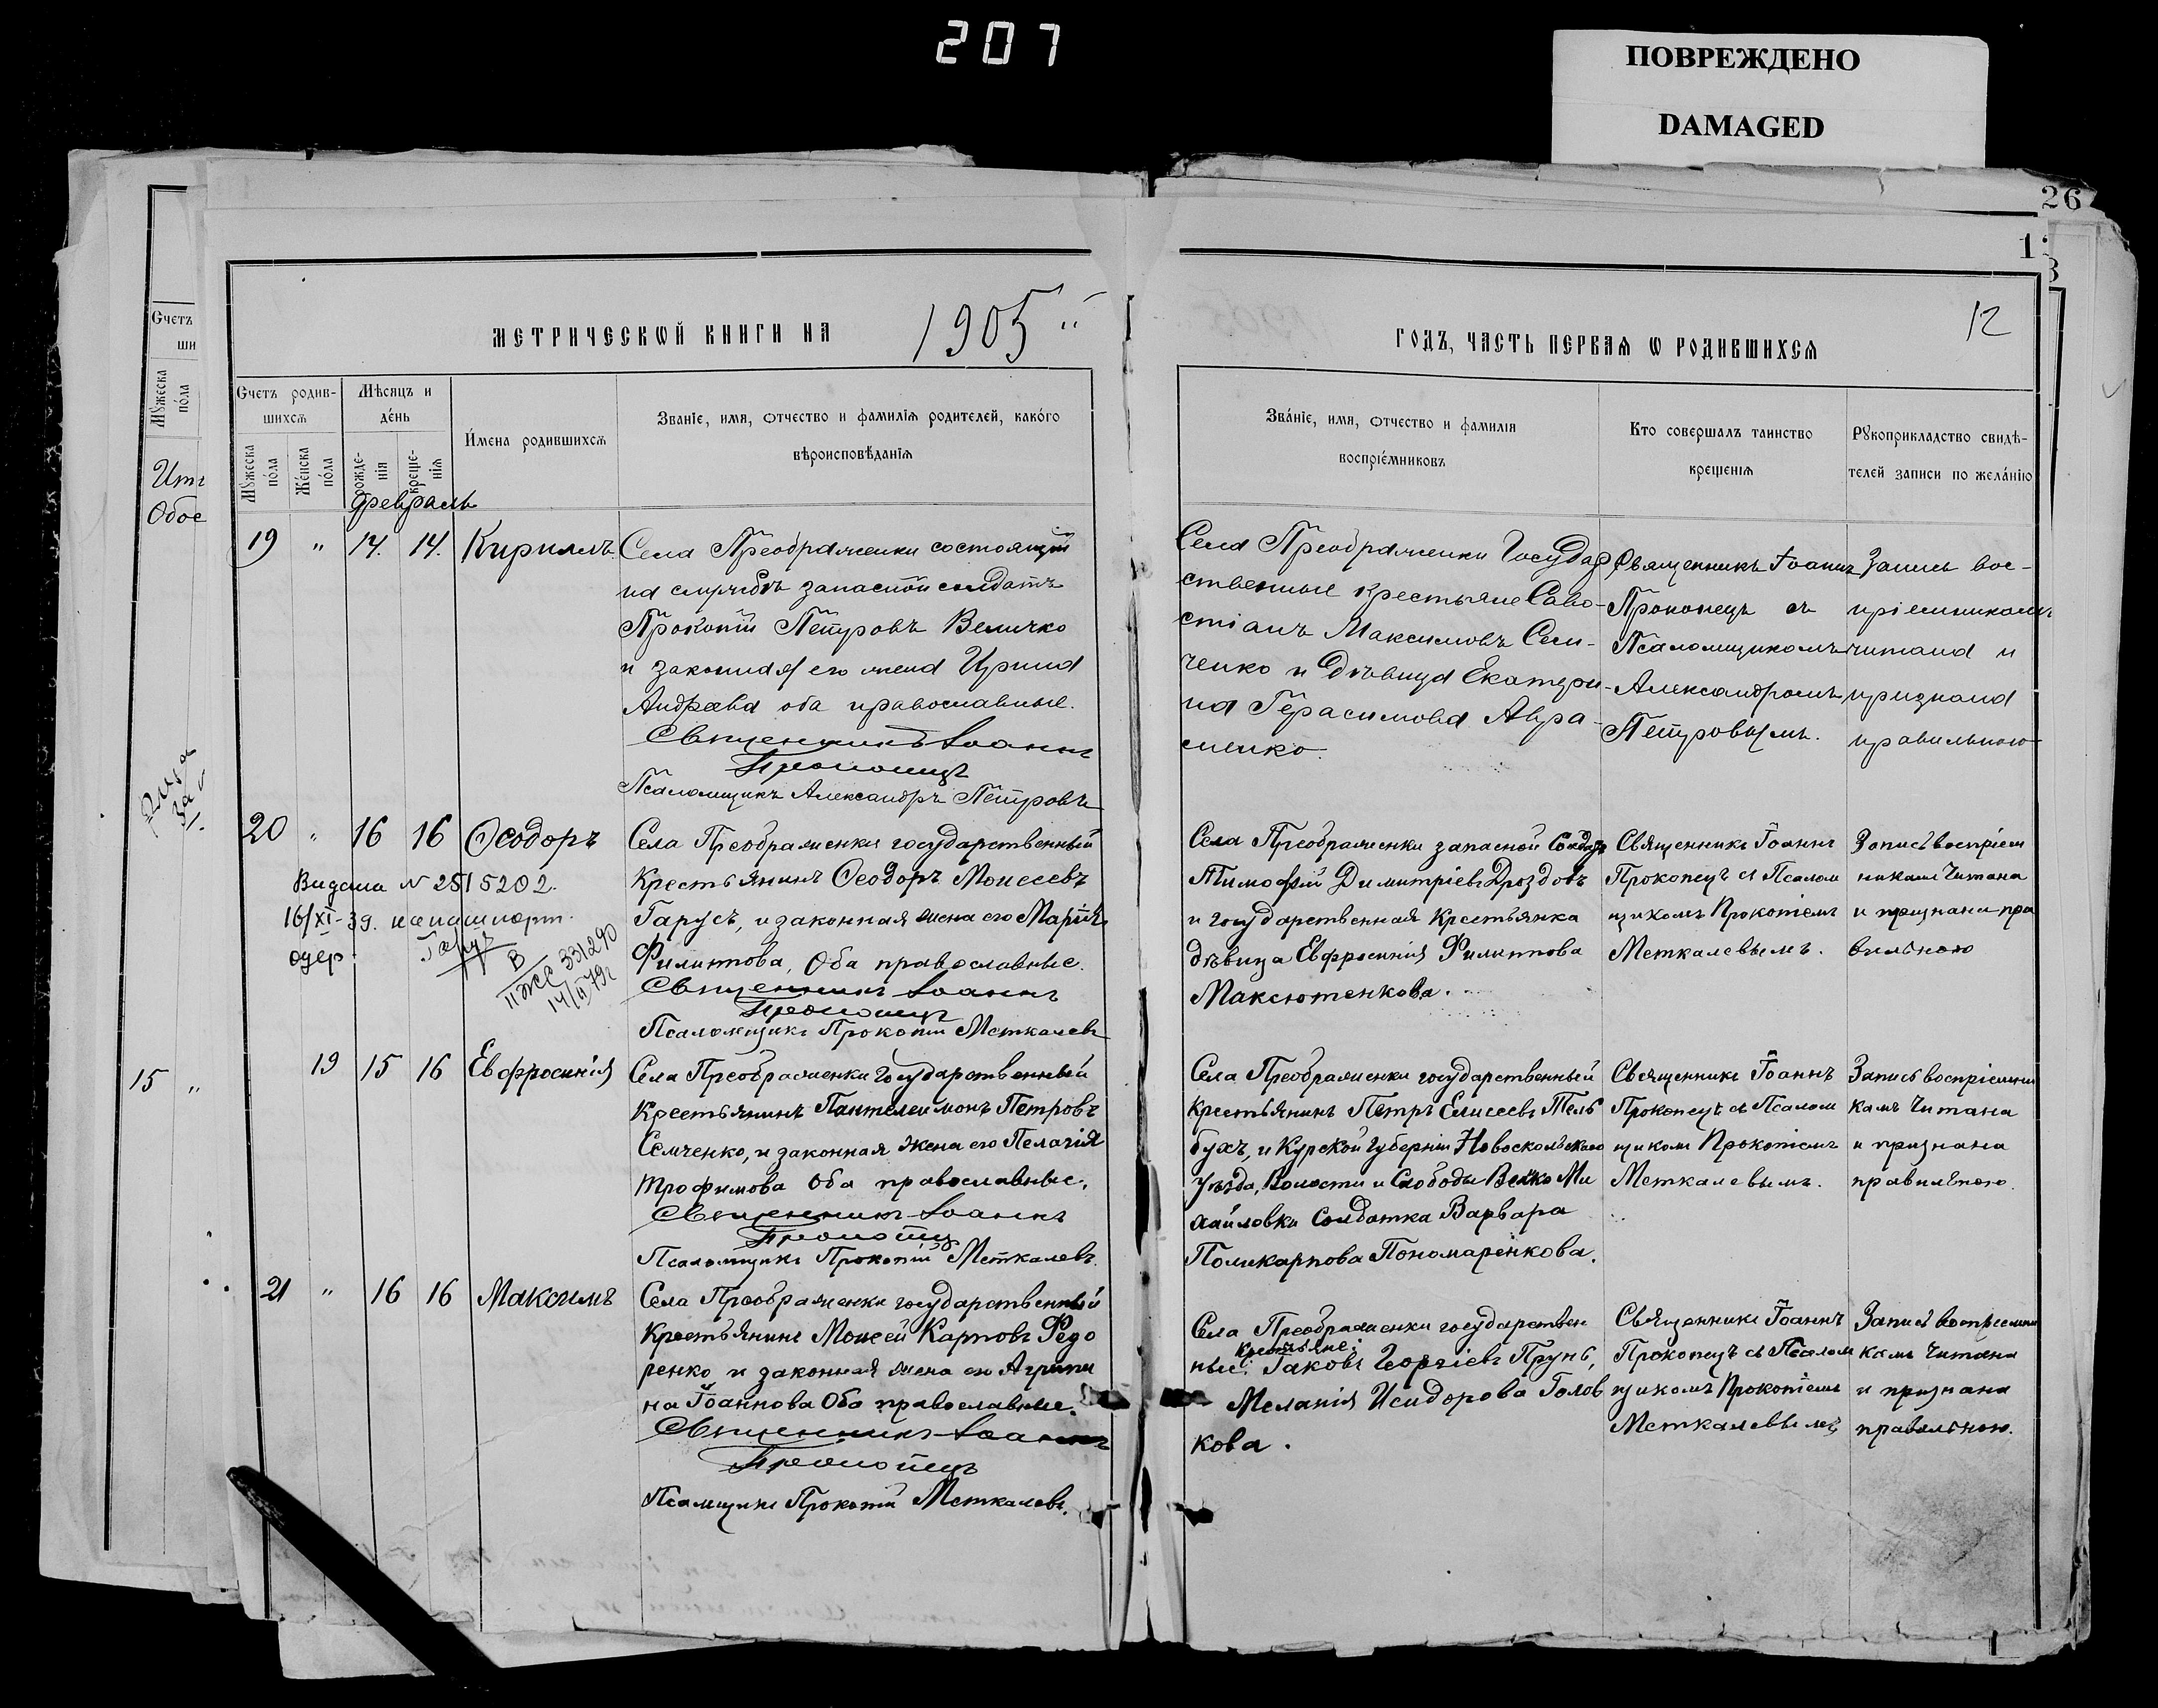 207
ПОВРЕЖДЕНО
DAMAGED
26
12
Счетъ
ши
Мужеска
пола
Обое
15 "
МЕТРИЧЕСКѠЙ КНИГИ НА 1905
ГОДЪ, ЧАСТЬ ПЕРВАЯ Ѡ РОДИВШИХСЯ
Счетъ родив-
шихся
Мужеска
пола
Женска
пола
Мѣсяцъ и
день
рожде-
нія
креще-
нія
Имена родившихся
Званіе, имя, отчество и фамилія родителей, какого
вѣроисповѣданія
Званіе, имя, отчество и фамилія
воспріемниковъ
Кто совершалъ таинство
крещенія
Рукоприкладство свидѣ-
телей записи по желанію
Февраль
19 " 14. 14. Кириллъ.
Села Преображенки состоящій
на службѣ запасной солдатъ
Прокопій Петровъ Величко
и законная его жена Ирина
Андреева оба православные.
Священникъ Іоаннъ
Прокопецъ
Псаломщикъ Александръ Петровъ
Села Преображенки Государ
ственные крестьяне Саво-
стіанъ Максимовъ Сем-
ченко и дѣвица Екатери-
на Герасимова Авра-
менко.
Священникъ Іоаннъ
Прокопецъ съ
Псаломщикомъ
Александромъ
Петровымъ.
Запись вос-
пріемникамъ
читана и
признана
правильною
20 " 16 16 Ѳеодоръ
Видана № 2515202.
16/XI-39. на пашпорт.
одер.
В
II ЖС 331290
14/II 79г
Села Преображенки государственный
Крестьянинъ Ѳеодоръ Моисеевъ
Гарусъ, и законная жена его Марія
Филиппова, Оба православные.
Священникъ Іоаннъ
Прокопецъ
Псаломщикъ Прокопій Меткалевъ
Села Преображенки запасной Солдатъ
Тимофей Димитріевъ Дроздовъ
и государственная крестьянка
дѣвица Евфросинія Филиппова
Максютенкова.
Священникъ Іоаннъ
Прокопецъ съ Псалом
щикомъ Прокопіемъ
Меткалевымъ.
Запись воспріем
никамъ Читана
и признана пра
вильною
19 15 16 Евфросинія
Села Преображенки Государственный
Крестьянинъ Пантелеимонъ Петровъ
Семченко, и законная жена его Пелагія
Трофимова Оба православные.
Священникъ Іоаннъ
Прокопецъ
Псаломщикъ Прокопій Меткалевъ.
Села Преображенки государственный
крестьянинъ Петръ Елисеевъ Тель
бухъ, и Курской Губерніи Новоскольскаго
Уѣзда, Волости и Слободы Велико Ми
хайловки Солдатка Варвара
Поликарпова Пономаренкова.
Священникъ Іоаннъ
Прокопецъ съ Псалом
щикомъ Прокопіемъ
Меткалевымъ.
Запись воспріемни
камъ Читана
и признана
правильною.
21 " 16 16 Максимъ
Села Преображенки государственный
Крестьянинъ Моисей Карповъ Федо
ренко и законная жена его Агрипи
на Іоаннова Оба православные.
Священникъ Іоаннъ
Прокопецъ
Псамщикъ Прокопій Меткалевъ.
Села Преображенки государствен
крестьяне:
ные: Іаковъ Георгіевъ Прунь,
Меланія Исидорова Голов
кова.
Священникъ Іоаннъ
Прокопецъ съ Псалом
щикомъ Прокопіемъ
Меткалевымъ
Запись воспріемни
камъ Читана
и признана
правильною.